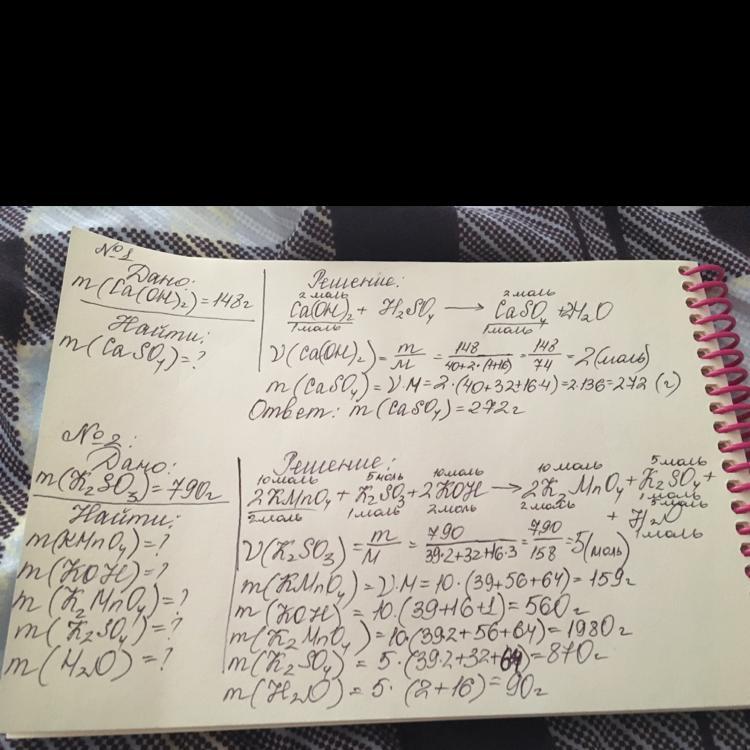 №1
Дано:
m(Ca(OH)₂)=148г
Найти:
m(CaSO₄)=?
Решение:
2моль 2моль
Ca(OH)₂ + H₂SO₄ → CaSO₄ + 2H₂O
1моль 1моль
ν(Ca(OH)₂) = m/M = 148/(40+2·(1+16)) = 148/74 = 2(моль)
m(CaSO₄) = ν·M = 2·(40+32+16·4)=2·136=272 (г)
Ответ: m(CaSO₄)=272г
№2:
Дано:
m(K₂SO₃)=790г
Найти:
m(KMnO₄)=?
m(KOH)=?
m(K₂MnO₄)=?
m(K₂SO₄)=?
m(H₂O)=?
Решение:
10моль 5моль 10моль 10моль 5моль
2KMnO₄ + K₂SO₃ + 2KOH → 2K₂MnO₄ + K₂SO₄ +
2моль 1моль 2моль 2моль 1моль
5моль
+ H₂O
1моль
ν(K₂SO₃) = m/M = 790/(39·2+32+16·3) = 790/158 = 5(моль)
m(KMnO₄) = ν·M = 10·(39+56+64) = 159г
m(KOH) = 10·(39+16+1) = 560г
m(K₂MnO₄) = 10·(39·2+56+64) = 1980г
m(K₂SO₄) = 5·(39·2+32+64) = 870г
m(H₂O) = 5·(2+16) = 90г